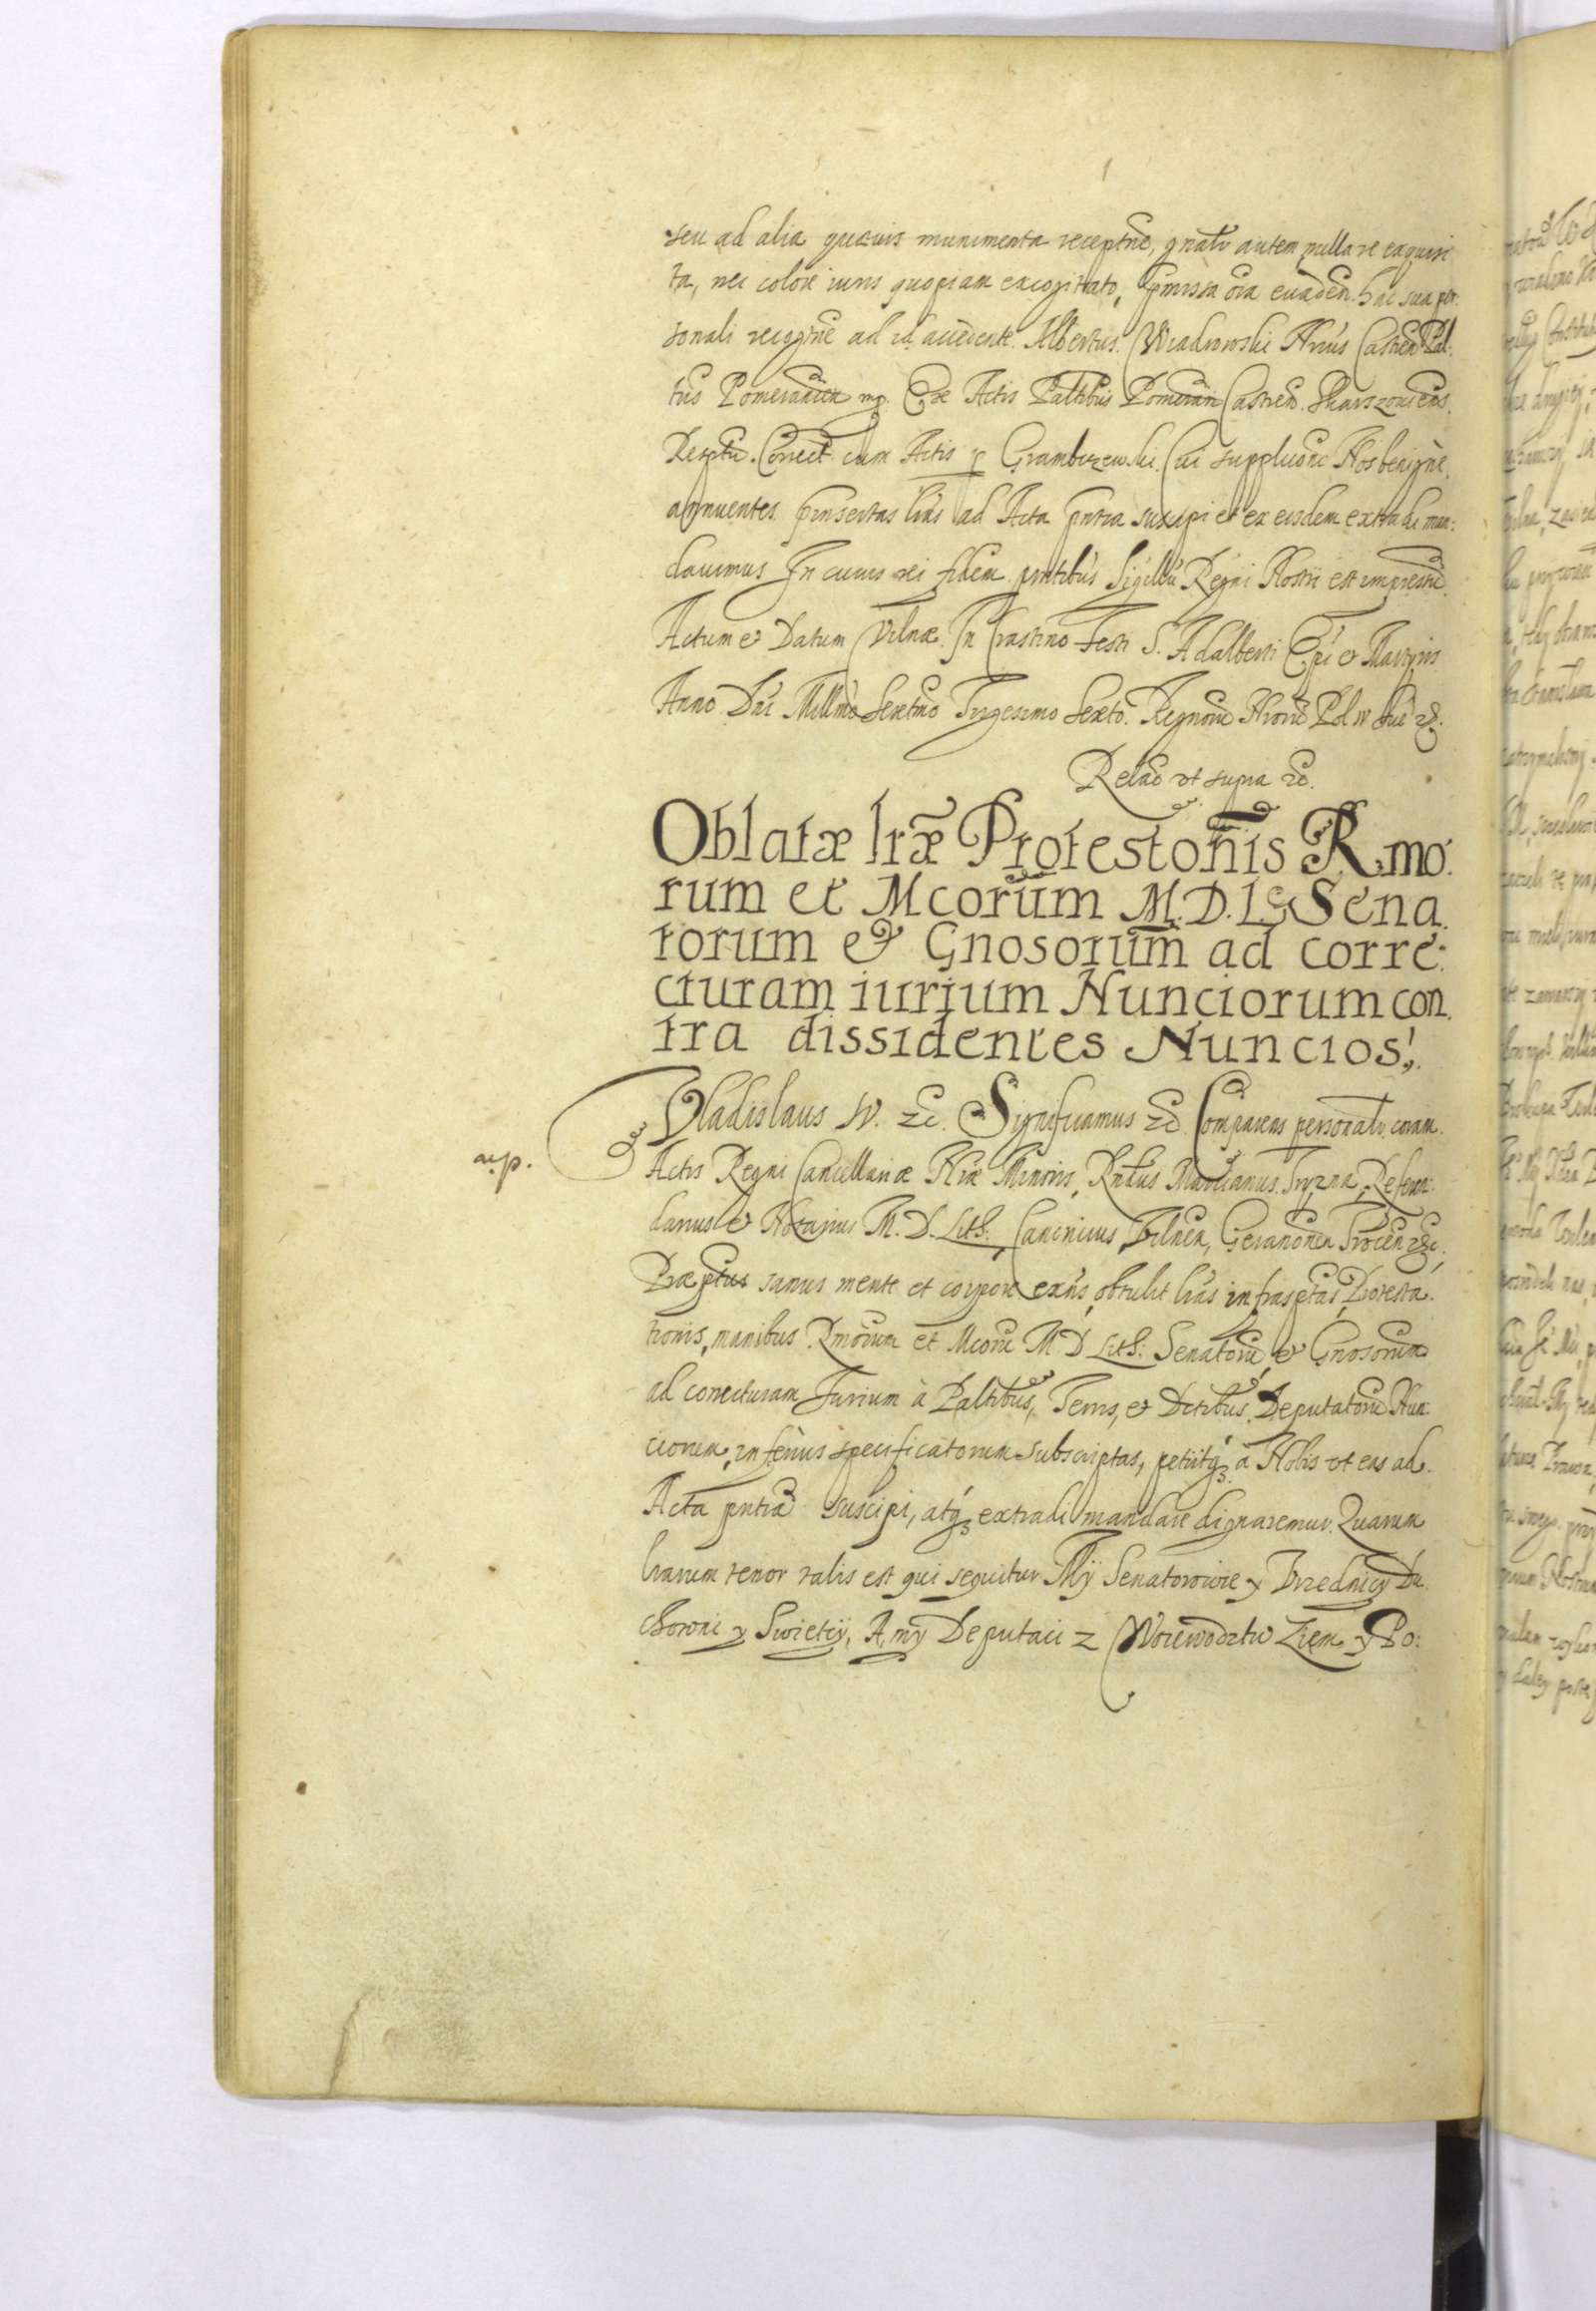 seu ad alia quævis munimenta receptne, gnalr autem nulla re exquisi
ta, nec colore iuris quopiam excogitato, pmissa oia evaden. hac sua per:
sonali recogne ad id accedente. Albertus Wiadrowski Nrius Castren Pal:
tus Pomeranien mp. Ex Actis Paltibus Pomeran Castren. Skarszoviens.
Descptu. Correct. cum Actis p Gramburewski. Cui supplicone Nos benigne
annuentes pinsertas lras ad Acta pntia suscipi et ex eisdem extradi man:
davimus In cuius rei fidem pntibus Sigillu Regni Nostri est impressu.
Actum et Datum Vilnæ. In Crastino Festi S. Adalberti Epi et Martyris
Anno Dni Millmo Sexctmo Trigesimo Sexto. Regnoru Nroru Pol IV Sue &c.
Relao ut supra &c.
Oblatæ lræ Protestonis R.mo:
rum et Mcorum M. D. L. Sena
torum et Gnosorum ad corre:
cturam iurium Nunciorum con
tra dissidentes Nuncios.
Vladislaus IV. &c. Significamus &c. Comparens personalr coram
a.p.
Actis Regni Cancellariæ Nræ Minoris, Rndus Marcianus Tryzna, Referen:
darius et Notarius M. D. Lith: Canonicus Vilnen, Geranonen Trocen &c.
Præptus sanus mente et corpore exns, obtulit lras infrasptas, Protesta.
tionis, manibus Rmorum et Mcoru M D Lith: Senatoru, et Gnosorum
ad correcturam Jurium à Paltibus, Terris, et Dctibus Deputatoru Nun:
ciorum, inferius specificatorum subscriptas, petiitq; à Nobis ut eas ad
Acta pntia suscipi, atq; extradi mandare dignaremur. Quarum
lrarum tenor talis est qui sequitur My Senatorowie y Vrzednicy Du
chowni y Swietcy, A my Deputaci z Woiewodztw Ziem y Po: